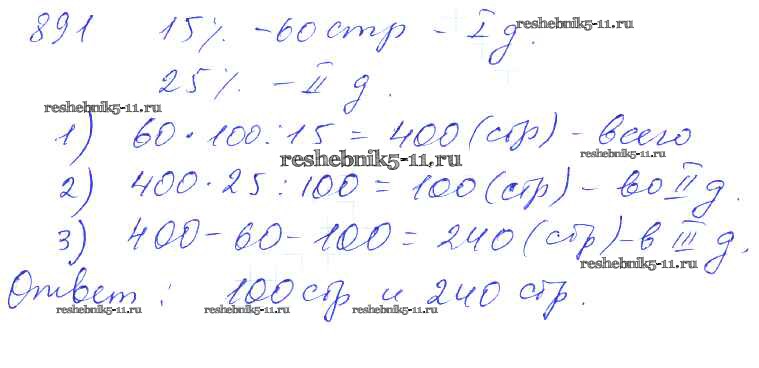 891 15% - 60 стр - I д.
reshebnik5-11.ru
25% - II д.
reshebnik5-11.ru
1) 60 · 100 : 15 = 400 (стр) - всего
reshebnik5-11.ru
reshebnik5-11.ru
2) 400 · 25 : 100 = 100 (стр) - во II д.
3) 400 - 60 - 100 = 240 (стр) - в III д.
reshebnik5-11.ru
Ответ: 100 стр и 240 стр.
reshebnik5-11.ru reshebnik5-11.ru reshebnik5-11.ru